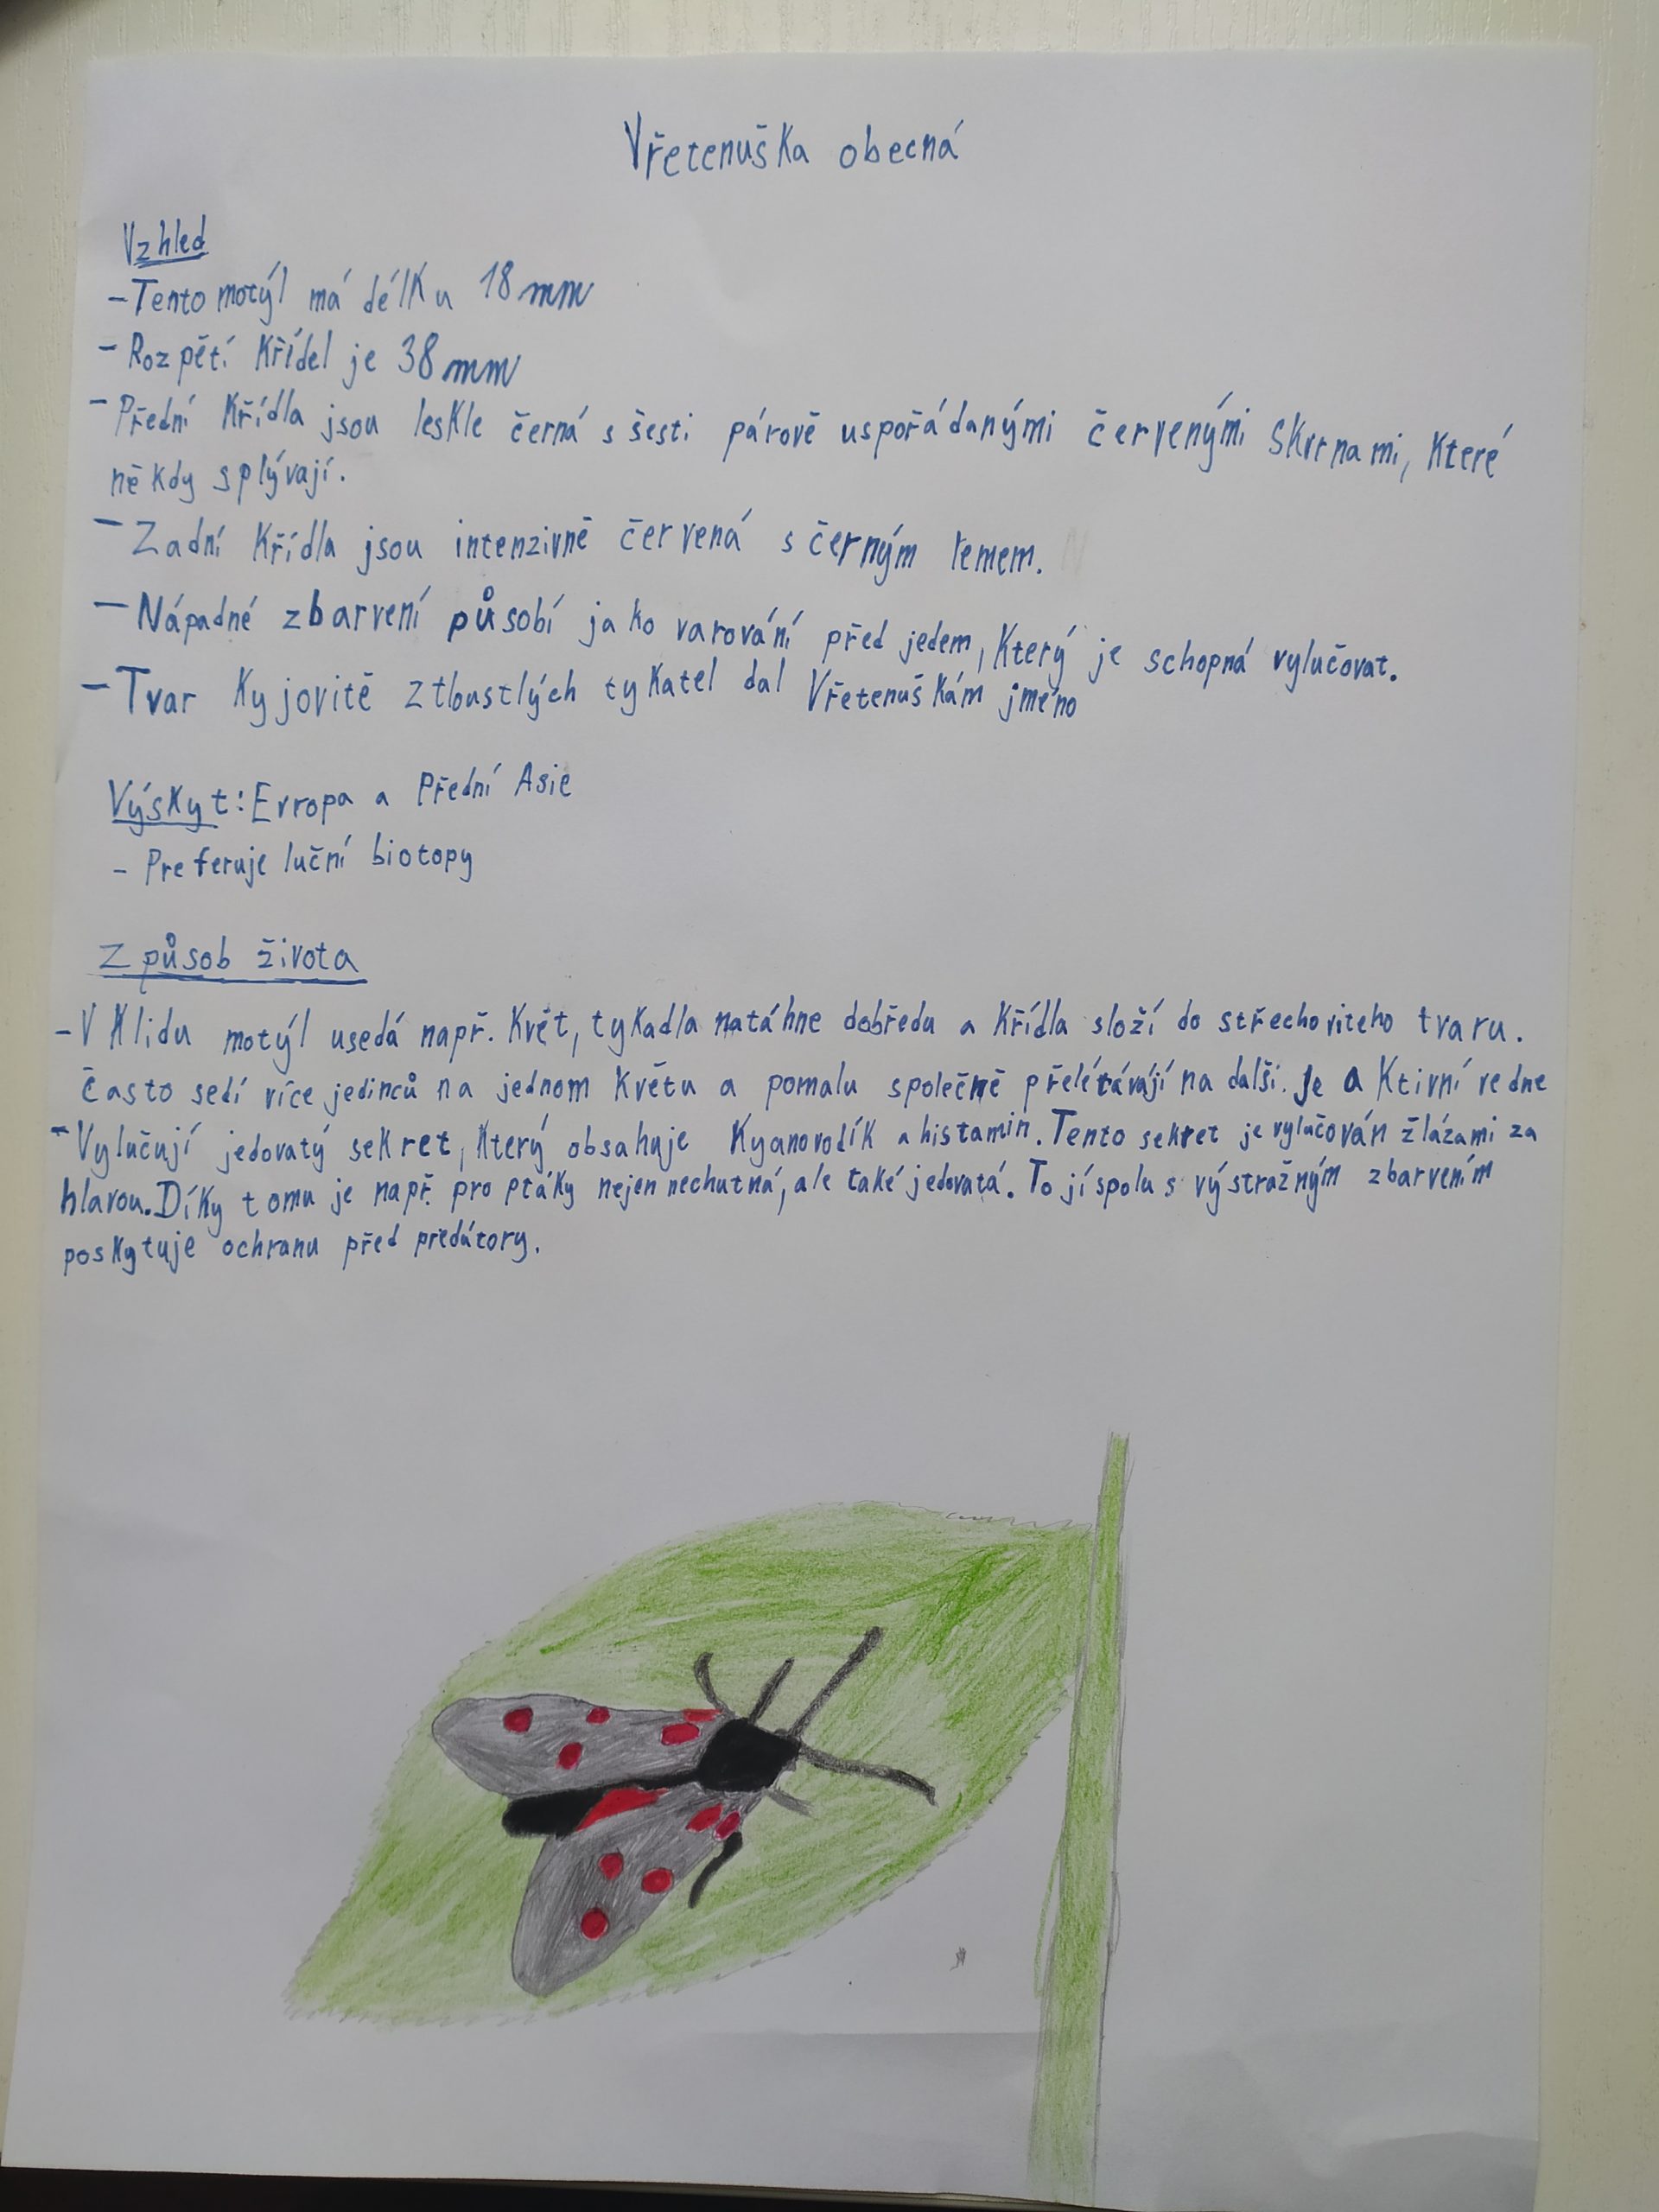 Vřetenuška obecná
Vzhled
- Tento motýl má délku 18 mm
- Rozpětí křídel je 38 mm
- Přední křídla jsou leskle černá s šesti párově uspořádanými červenými skvrnami, které
někdy splývají.
- Zadní křídla jsou intenzivně červená s černým lemem.
- Nápadné zbarvení působí jako varování před jedem, který je schopná vylučovat.
- Tvar kyjovitě ztloustlých tykatel dal Vřetenuškám jméno
Výskyt: Evropa a Přední Asie
- Preferuje luční biotopy
Způsob života
- V klidu motýl usedá např. květ, tykadla natáhne dobředu a křídla složí do střechovitého tvaru.
často sedí více jedinců na jednom květu a pomalu společně přelétávají na další. Je aktivní ve dne
- Vylučují jedovatý sekret, který obsahuje kyanovodík a histamin. Tento sekret je vylučován žlázami za
hlavou. Díky tomu je např. pro ptáky nejen nechutná, ale také jedovatá. To jí spolu s výstražným zbarvením
poskytuje ochranu před predátory.